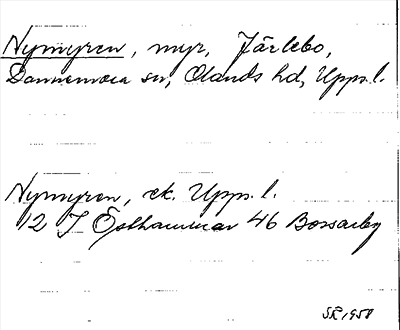 Nymyren, myr, Järlebo,
Dannemora sn, Olands hd, Upps. l.
Nymyren, ek. Upps. l.
12 I Östhammar 46 Bossarby
SR 1958